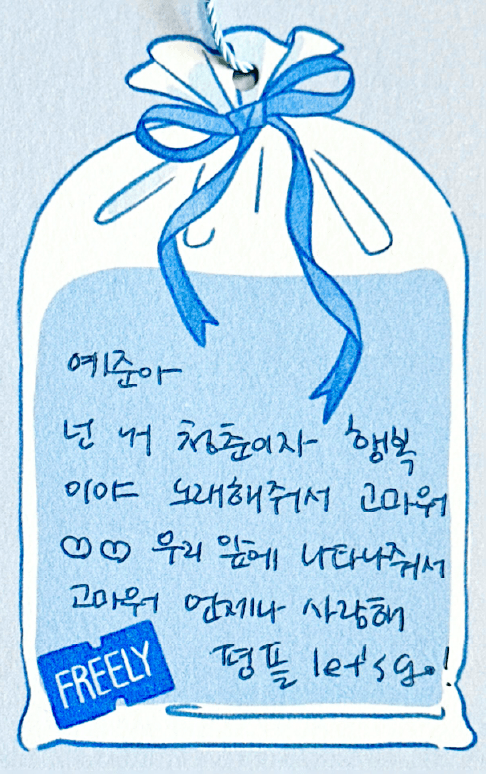 예준아
넌 내 청춘이자 행복
이야 노래해줘서 고마워
우리 앞에 나타나줘서
고마워 언제나 사랑해
평플 let's go!
FREELY